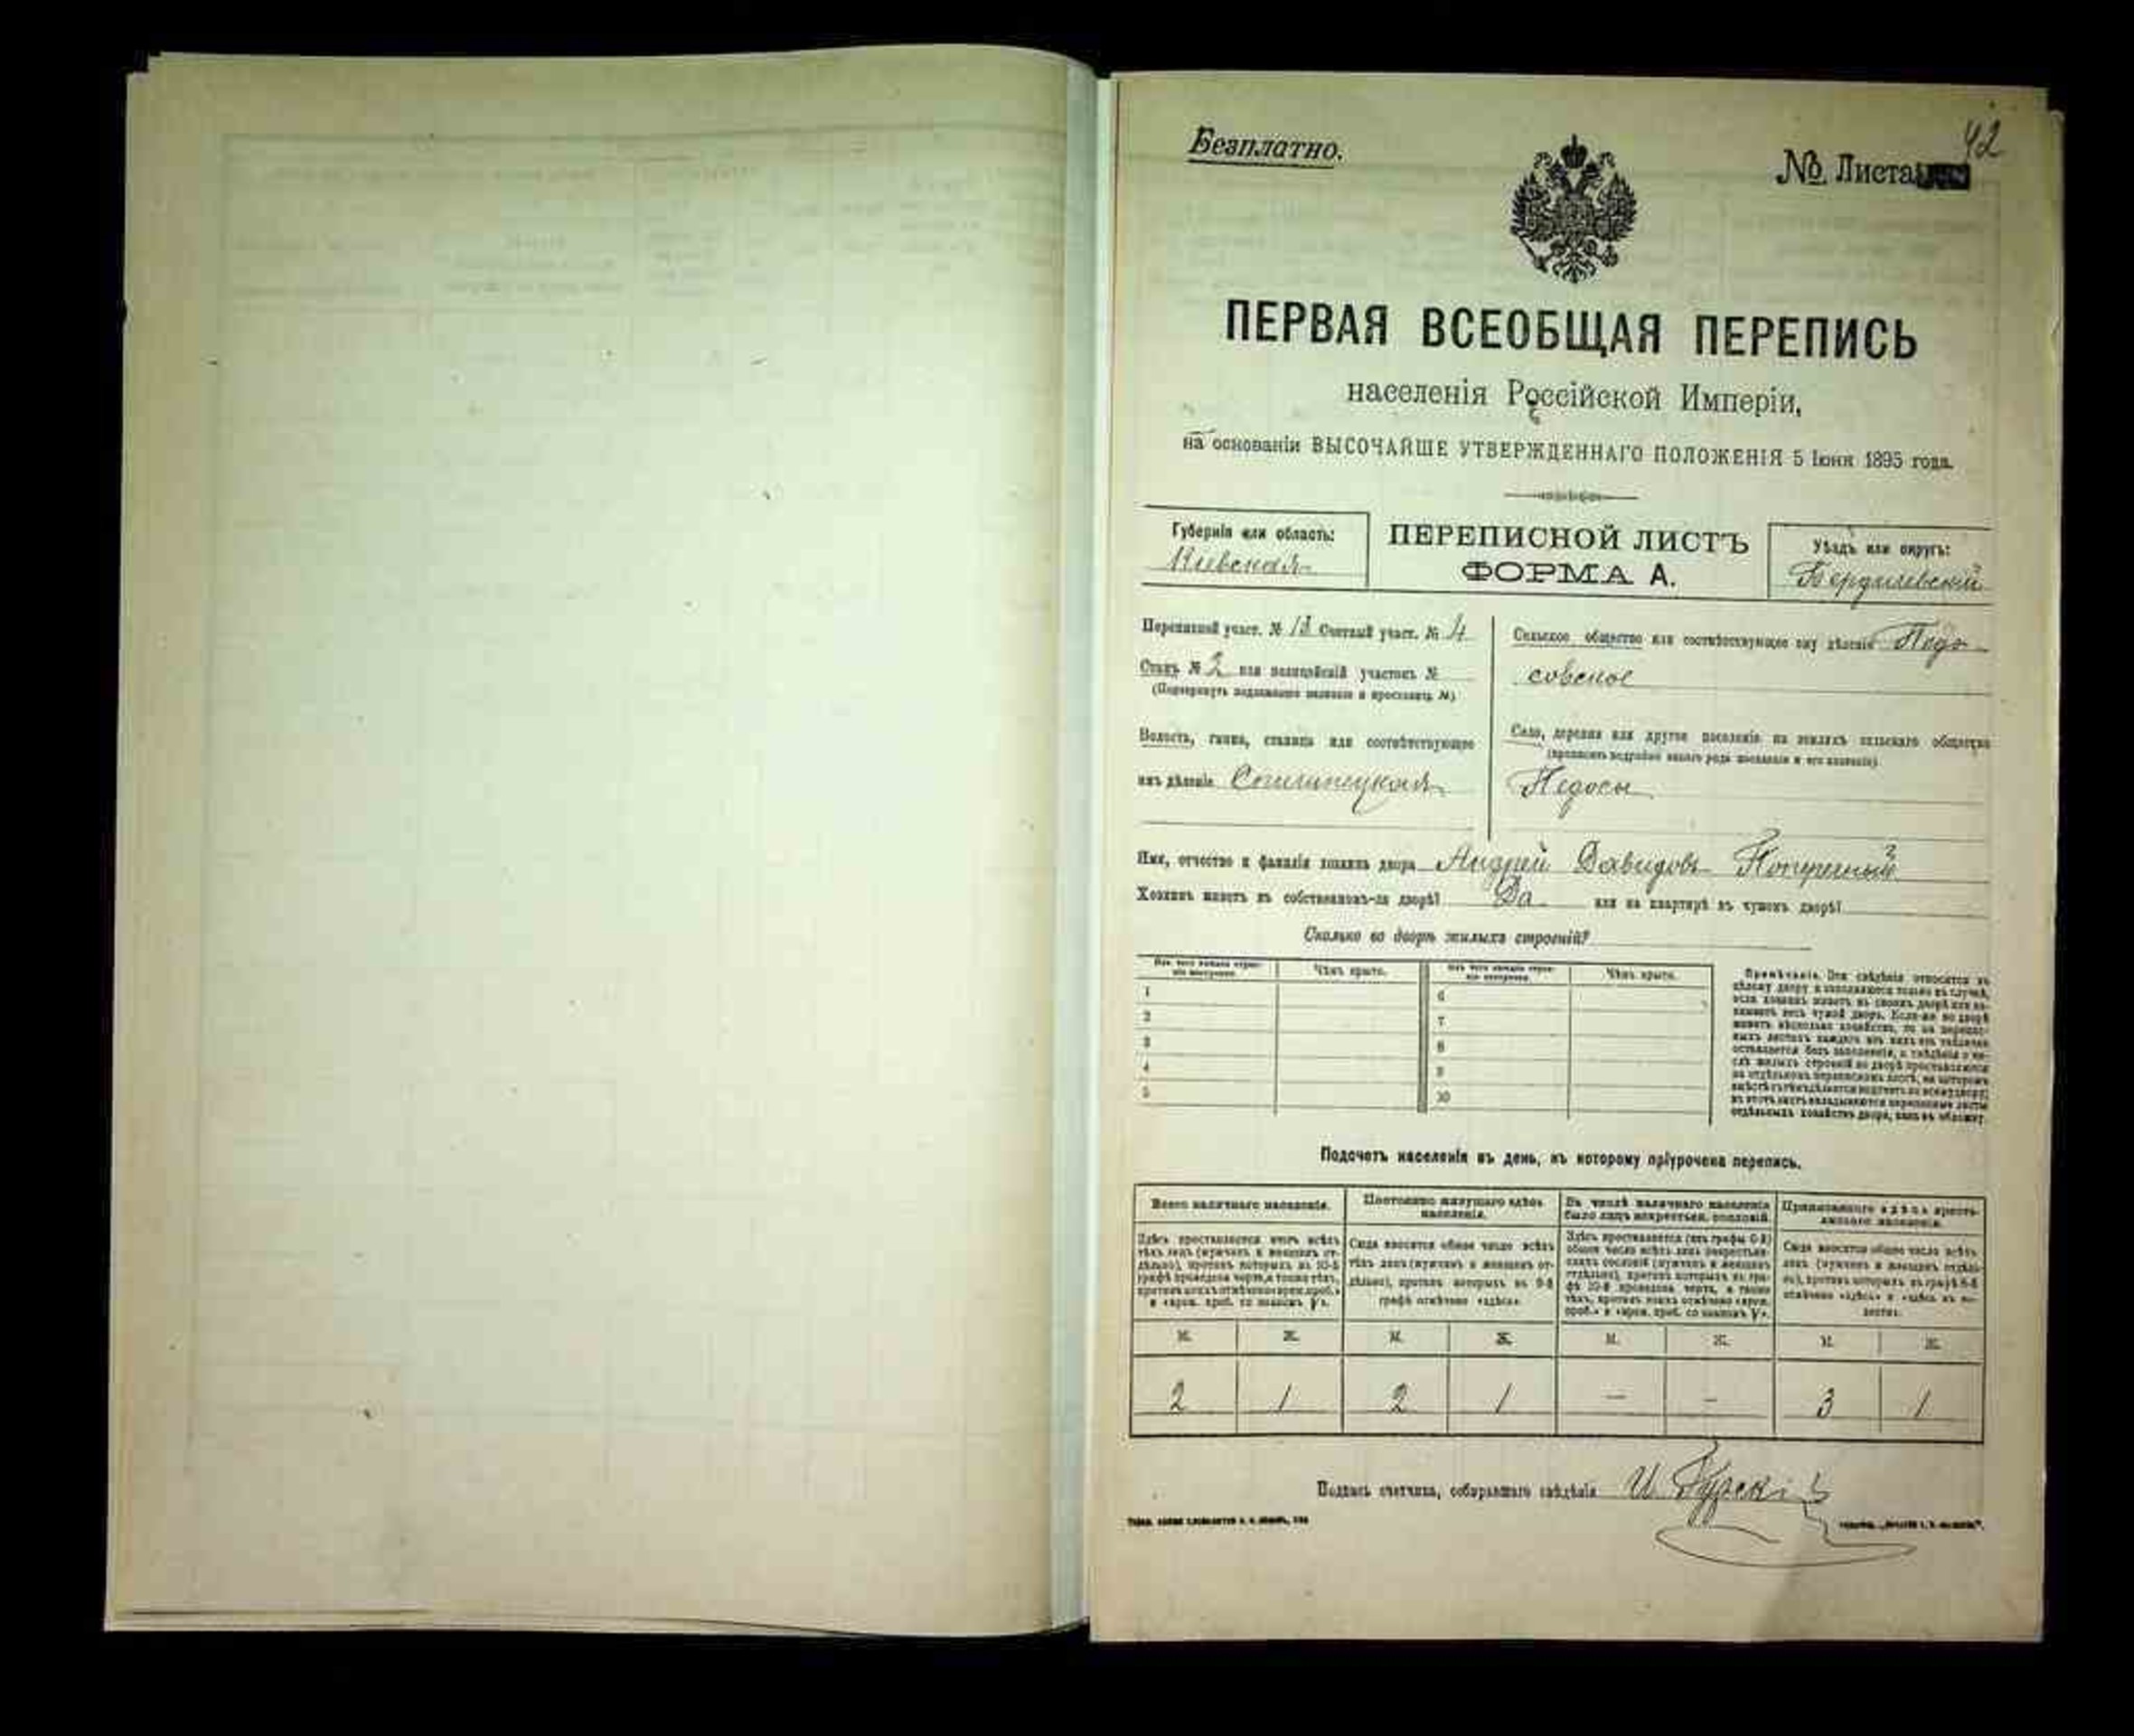 42
Безплатно.
№ Листа
ПЕРВАЯ ВСЕОБЩАЯ ПЕРЕПИСЬ
населенія Россійской Имперіи,
на основаніи ВЫСОЧАЙШЕ УТВЕРЖДЕННАГО ПОЛОЖЕНІЯ 5 Іюня 1895 года.
Губернія или область:
Кіевская
ПЕРЕПИСНОЙ ЛИСТЪ
ФОРМА А.
Уѣздъ или округъ:
Бердичевскій
Переписной участ. № 13 Счетный участ. № 4
Станъ № 2 или полицейскій участокъ №
(Подчеркнуть надлежащее названіе и проставить №)
Волость, гмина, станица или соотвѣтствующее
имъ дѣленіе
Сельское общество или соотвѣтствующее ему дѣленіе Недо
совское
Село, деревня или другое поселеніе на земляхъ сельскаго общества
(прописать подробно какого рода поселеніе и его названіе)
Недосы
Имя, отчество и фамилія хозяина двора Андрей Давидовъ
Хозяинъ живетъ въ собственномъ-ли дворѣ? Да или на квартирѣ въ чужомъ дворѣ?
Сколько во дворѣ жилыхъ строеній?
Изъ чего каждое строе-
ніе построено.
Чѣмъ крыто.
Изъ чего каждое строе-
ніе построено.
Чѣмъ крыто.
1
2
3
4
5
6
7
8
9
10
Примѣчаніе. Эти свѣдѣнія относятся къ
цѣлому двору и заполняются только въ случаѣ,
если хозяинъ живетъ въ своемъ дворѣ или за-
нимаетъ весь чужой дворъ. Если-же во дворѣ
живетъ нѣсколько хозяйствъ, то на перепис-
ныхъ листахъ каждаго изъ нихъ эта табличка
оставляется безъ заполненія, а свѣдѣнія о чи-
слѣ жилыхъ строеній во дворѣ проставляются
на отдѣльномъ переписномъ листѣ, на которомъ
вмѣстѣ съ тѣмъ дѣлается подсчетъ по всему двору;
въ этотъ листъ вкладываются переписные листы
отдѣльныхъ хозяйствъ двора, какъ въ обложку.
Подсчетъ населенія въ день, къ которому пріурочена перепись.
Всего наличнаго населенія.
Постоянно живущаго здѣсь
населенія.
Въ числѣ наличнаго населенія
было лицъ некрестьян. сословій.
Приписаннаго здѣсь кресть-
янскаго населенія.
Здѣсь проставляется итогъ всѣхъ
тѣхъ лицъ (мужчинъ и женщинъ от-
дѣльно), противъ которыхъ въ 10-й
графѣ проведена черта, а также тѣхъ,
противъ коихъ отмѣчено «врем. проб.»
и «врем. проб. со знакомъ V».
Сюда вносится общее число всѣхъ
тѣхъ лицъ (мужчинъ и женщинъ от-
дѣльно), противъ которыхъ въ 9-й
графѣ отмѣчено «здѣсь».
Здѣсь проставляется (изъ графы 6-й)
общее число всѣхъ лицъ некрестьян-
скихъ сословій (мужчинъ и женщинъ
отдѣльно), противъ которыхъ въ гра-
фѣ 10-й проведена черта, а также
тѣхъ, противъ коихъ отмѣчено «врем.
проб.» и «врем. проб. со знакомъ V».
Сюда вносится общее число всѣхъ
лицъ (мужчинъ и женщинъ отдѣль-
но), противъ которыхъ въ графѣ 8-й
отмѣчено «здѣсь» и «здѣсь въ во-
лости».
М. Ж. М. Ж. М. Ж. М. Ж.
2 1 2 1 — — 3 1
Подпись счетчика, собиравшаго свѣдѣнія И. Гурскій